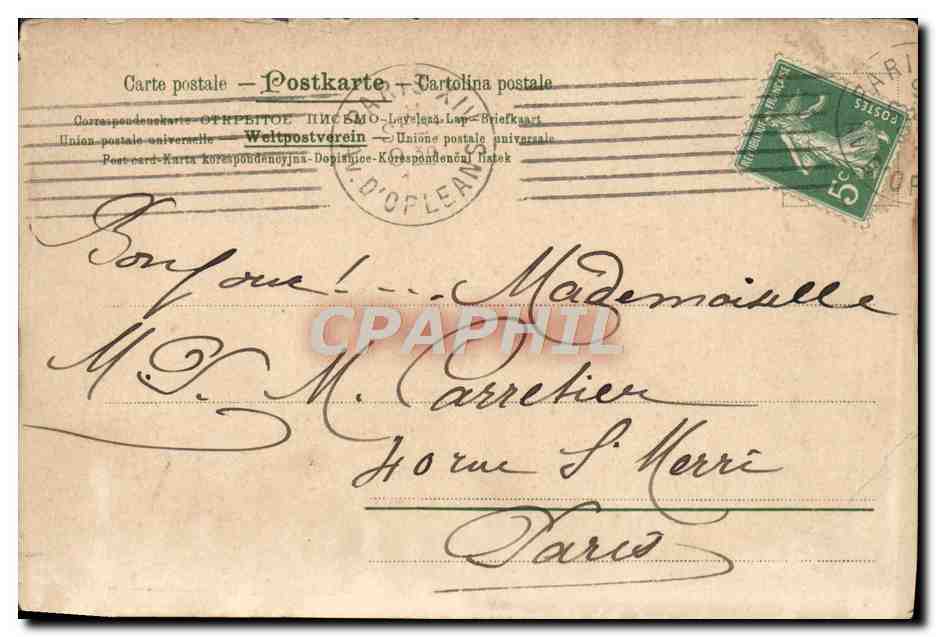 Carte postale — Postkarte — Cartolina postale
Correspondenzkarte-ОТКРЫТОЕ ПИСЬМО-Levelezö Lap-Briefkaart
Union postale universelle-Weltpostverein-Unione postale universale
Post card-Karta korespondencyjna-Dopisnice-Korespondenční lístek
PARIS XIII
AV. D'ORLEANS
REPUBLIQUE FRANÇAISE
POSTES
5c
Bonjour! ... Mademoiselle
CPAPHIL
M. Carretier
40 rue St Merri
Paris